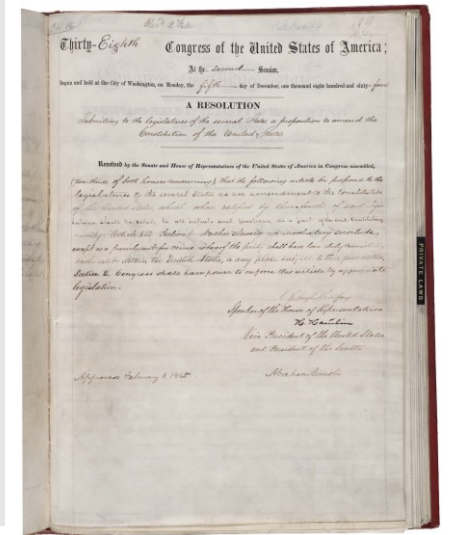 Thirty-Eighth Congress of the United States of America;
At the second Session,
Begun and held at the City of Washington, on Monday, the fifth day of December, one thousand eight hundred and sixty-four
A RESOLUTION
Submitting to the legislatures of the several States a proposition to amend the
Constitution of the United States
Resolved by the Senate and House of Representatives of the United States of America in Congress assembled,
(two-thirds of both houses concurring), That the following article be proposed to the
legislatures of the several States as an amendment to the Constitution
of the United States, which, when ratified by three-fourths of said Legis-
latures shall be valid, to all intents and purposes, as a part of the said Constitution
namely: Article XIII. Section 1. Neither slavery nor involuntary servitude,
except as a punishment for crime whereof the party shall have been duly convicted,
shall exist within the United States, or any place subject to their jurisdiction.
Section 2. Congress shall have power to enforce this article by appropriate
legislation.
Speaker of the House of Representatives
H. Hamlin
Vice President of the United States
and President of the Senate
Approved February 1, 1865
Abraham Lincoln
PRIVATE LAWS